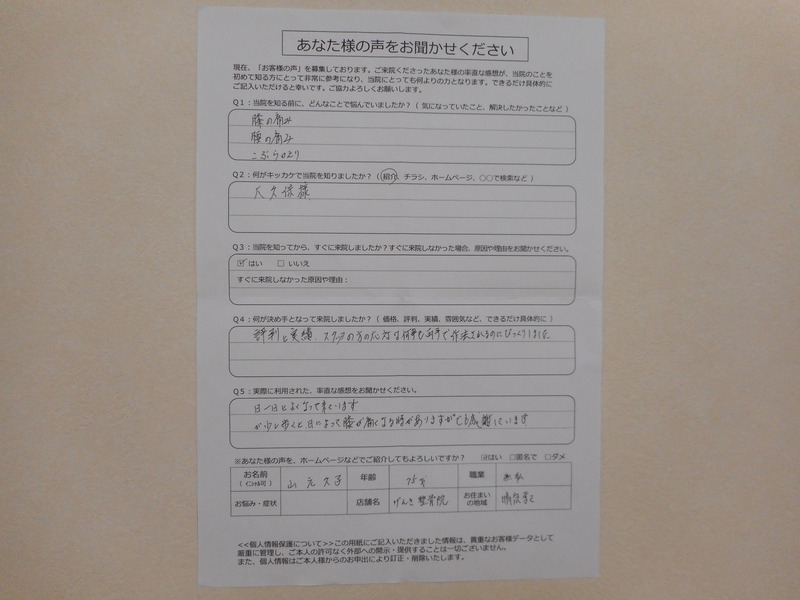 あなた様の声をお聞かせください
現在、「お客様の声」を募集しております。ご来院くださったあなた様の率直な感想が、当院のことを
初めて知る方にとって非常に参考になり、当院にとっても何よりの力となります。できるだけ具体的に
ご記入いただけると幸いです。ご協力よろしくお願いします。
Q1：当院を知る前に、どんなことで悩んでいましたか？（ 気になっていたこと、解決したかったことなど ）
膝の痛み
腰の痛み
こぶらがえり
Q2：何がキッカケで当院を知りましたか？（ 紹介、チラシ、ホームページ、○○で検索など ）
大久保様
Q3：当院を知ってから、すぐに来院しましたか？すぐに来院しなかった場合、原因や理由をお聞かせください。
☑ はい　□ いいえ
すぐに来院しなかった原因や理由：
Q4：何が決め手となって来院しましたか？（ 価格、評判、実績、雰囲気など、できるだけ具体的に ）
評判と実績、スタッフの方の
びっくりしました
Q5：実際に利用された、率直な感想をお聞かせください。
日一日とよくなって来ています
が少し歩くと日によって膝が痛くなる時がありますがでも感謝しています
※あなた様の声を、ホームページなどでご紹介してもよろしいですか？　☑はい　□匿名で　□ダメ
お名前（イニシャル可）　山元久子　年齢　75才　職業
お悩み・症状　店舗名　げんき整骨院　お住まいの地域
<<個人情報保護について>>この用紙にご記入いただきました情報は、貴重なお客様データとして
厳重に管理し、ご本人の許可なく外部への開示・提供することは一切ございません。
また、個人情報はご本人様からのお申出により訂正・削除いたします。